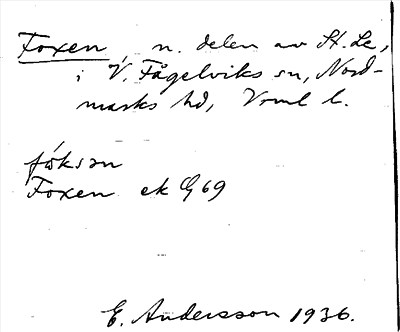 Foxen, n. delen av St. Le,
i V. Fågelviks sn, Nord-
marks hd, Vrml l.
fωksən
Foxen ek G 69
E. Andersson 1936.